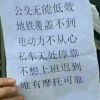 公交无能低效
地铁覆盖不到
电动力不从心
私车无处停靠
不想上班迟到
唯有摩托可靠